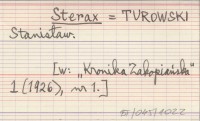 Sterax = TUROWSKI
Stanisław.
[w: „Kronika Zakopiańska”
1 (1926), nr 1.]